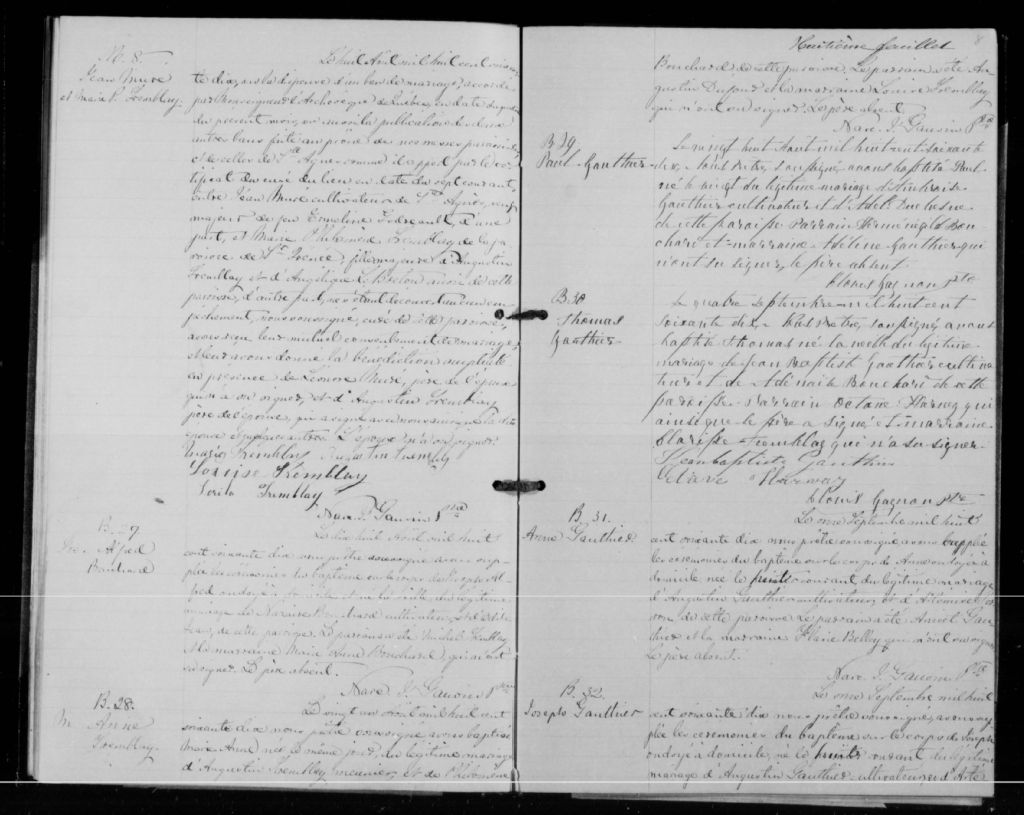 M. 8.
Jean Muré
et Marie P. Tremblay
Le huit Août mil huit cent soixan-
te dix, vu la dispense d'un ban de mariage, accordé
par Monseigneur l'Archevêque de Québec, en date du
du présent mois, vu aussi la publication des deux
autres bans faite au prône de nos messes paroissiales
et de celles de Ste Agnès comme il appert par le cer-
tificat du curé du lieu en date du sept courant,
entre Jean Muré cultivateur de Ste Agnès, veuf
majeur de feu Emméline d'une
part, et Marie Philomène Tremblay de la pa-
roisse de St Irénée, fille majeure d'Augustin
Tremblay et d'Angélique de cette
paroisse, d'autre part, ne s'étant découvert aucun em-
pêchement, nous soussigné, curé de cette paroisse,
avons reçu leur mutuel consentement de mariage
et leur avons donné la bénédiction nuptiale
en présence de Léonore Muré, père de l'époux
qui n'a su signer, et d'Augustin Tremblay
père de l'épouse, qui a signé avec nous ainsi que
quelques autres. L'époux n'a su signer.
Tremblay Augustin Tremblay
Louise Tremblay
Tremblay
Narc. J. Gauvin Ptre
B. 27
Alfred
Bouchard
Le dix huit Août mil huit
cent soixante dix nous prêtre soussigné avons sup-
pléé les cérémonies du baptême sur le corps de Joseph Al-
fred ondoyé né du légitime
mariage de Narcisse Bouchard cultivateur, et de
de cette paroisse. Le parrain a été Michel Tremblay
et la marraine Marie Anne Bouchard, qui n'ont
su signer. Le père absent.
Narc. J. Gauvin Ptre
B. 28
M. Anne
Tremblay
Le vingt un Août mil huit cent
soixante dix nous prêtre soussigné avons baptisé
Marie Anne née le même jour, du légitime mariage
d'Augustin Tremblay meunier, et de Philomène
8
Huitième feuillet
Bouchard de cette paroisse. Le parrain a été Au-
gustin Dufour et la marraine Louise Tremblay
qui n'ont su signer. Le père absent.
Narc. J. Gauvin Ptre
B 29
Paul Gauthier
Le vingt huit Août mil huit cent soixante
dix, Nous Prêtre, soussigné avons baptisé Paul
né le vingt du légitime mariage d'
Gauthier cultivateur et d'Adèle Duchesne
de cette paroisse Parrain Herménégilde Bou-
chard et marraine Adéline Gauthier qui
n'ont su signer, le père absent.
Clovis Gagnon Ptre
B. 30
Thomas
Gauthier
Le quatre Septembre mil huit cent
soixante dix, Nous Prêtre, soussigné avons
baptisé Thomas né la veille du légitime
mariage de Jean Baptiste Gauthier cultiva-
teur et de Adénaïde Bouchard de cette
paroisse. Parrain Octave Harvey qui
ainsi que le père a signé et marraine
Clarisse Tremblay qui n'a su signer
Jean baptiste Gauthier
Octave Harvay
Clovis Gagnon Ptre
B. 31.
Anne Gauthier
Le onze Septembre mil huit
cent soixante dix nous prêtre soussigné avons suppléé
les cérémonies du baptême sur le corps de Anne ondoyée à
domicile née le huit courant du légitime mariage
d'Augustin Gauthier cultivateur, et d'Artémise
de cette paroisse Le parrain a été Gau-
thier et la marraine Marie Belley qui n'ont su signer.
Le père absent.
Narc. J. Gauvin Ptre
B. 32.
Joseph Gauthier
Le onze Septembre mil huit
cent soixante dix nous prêtre soussigné, avons sup-
pléé les cérémonies du baptême sur le corps de Joseph
ondoyé à domicile, né le huit courant du légitime
mariage d'Augustin Gauthier cultivateur, et d'Arté-